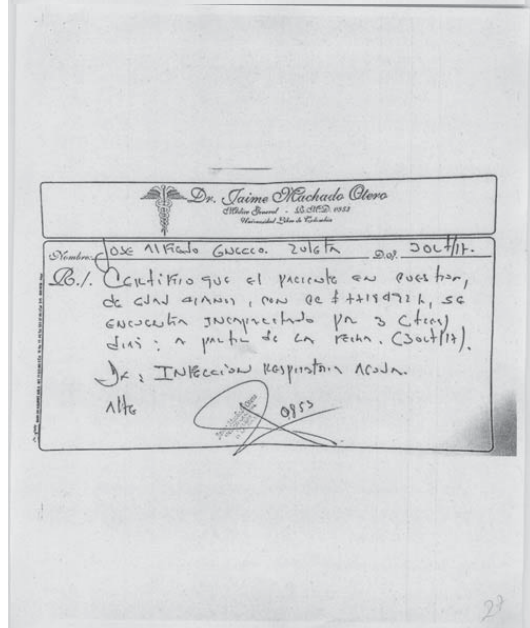 Dr. Jaime Machado Otero
Médico General - R.M.D. 0953
Universidad Libre de Colombia
Nombre: Jose Alfredo Gnecco Zuleta D.o.f. 3Oct/17.
R./. Certifico que el paciente en question,
de edad años, con cc # se
encuentra Incapacitado por 3 (tres)
días: a partir de la fecha. (3oct/17).
Dx: Infeccion Respiratoria Aguda.
Alta
0953
27